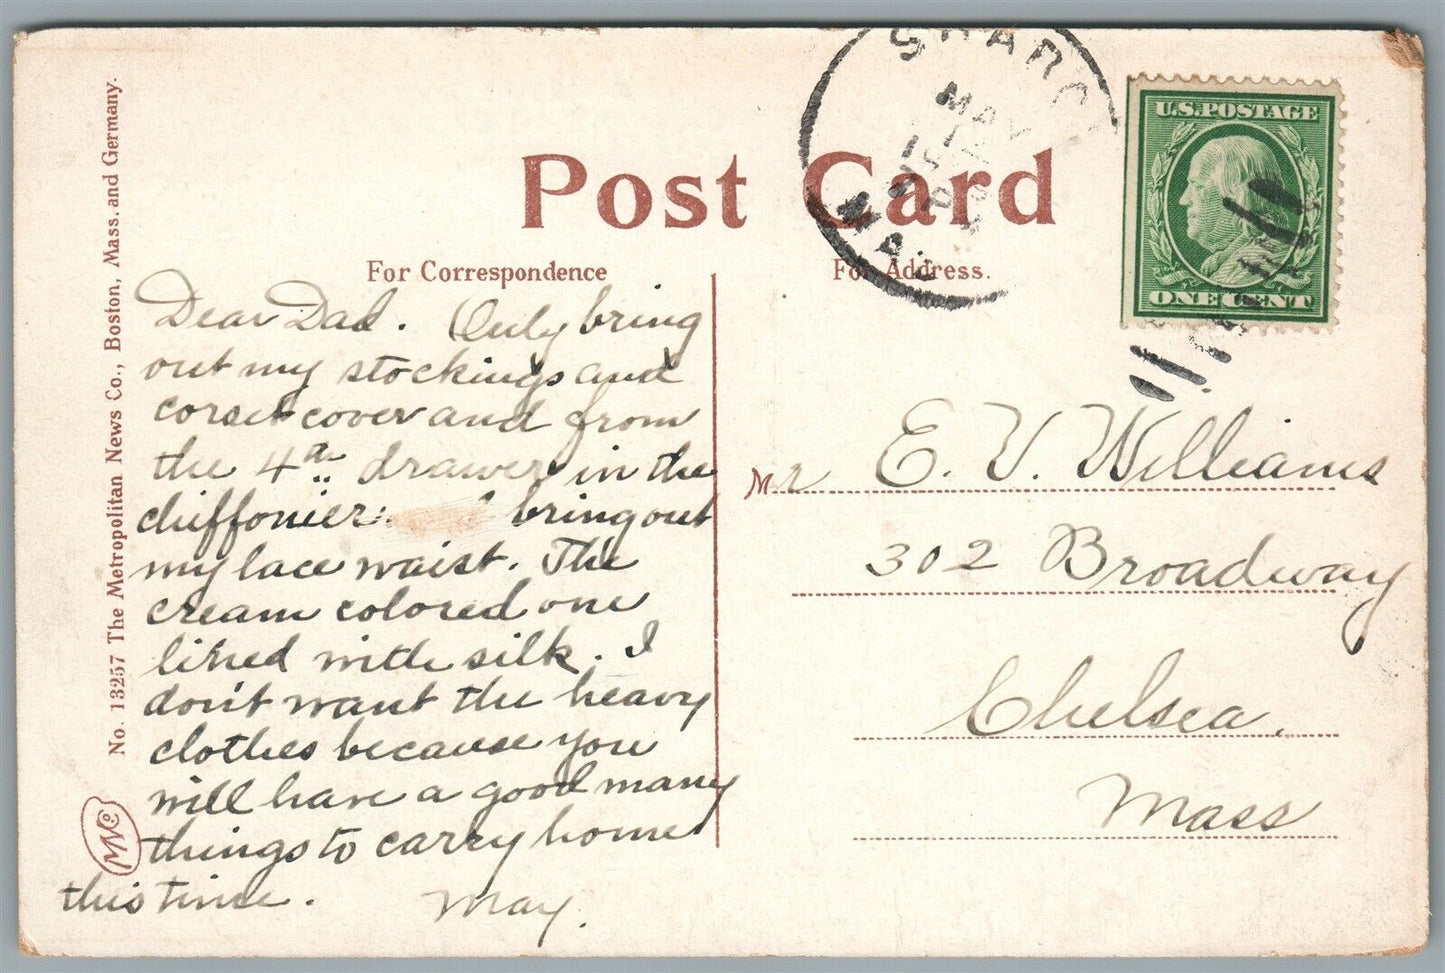 Post Card
For Correspondence
For Address.
U.S. POSTAGE
ONE CENT
SHARO
MAY
MAS
No. 13257 The Metropolitan News Co., Boston, Mass. and Germany.
MNCo
Dear Dad. Only bring
out my stockings and
corset cover and from
the 4th drawer in the
chiffonier bring out
my lace waist. The
cream colored one
lined with silk. I
don't want the heavy
clothes because you
will have a good many
things to carry home
this time. May.
Mr E. V. Williams
302 Broadway
Chelsea.
Mass